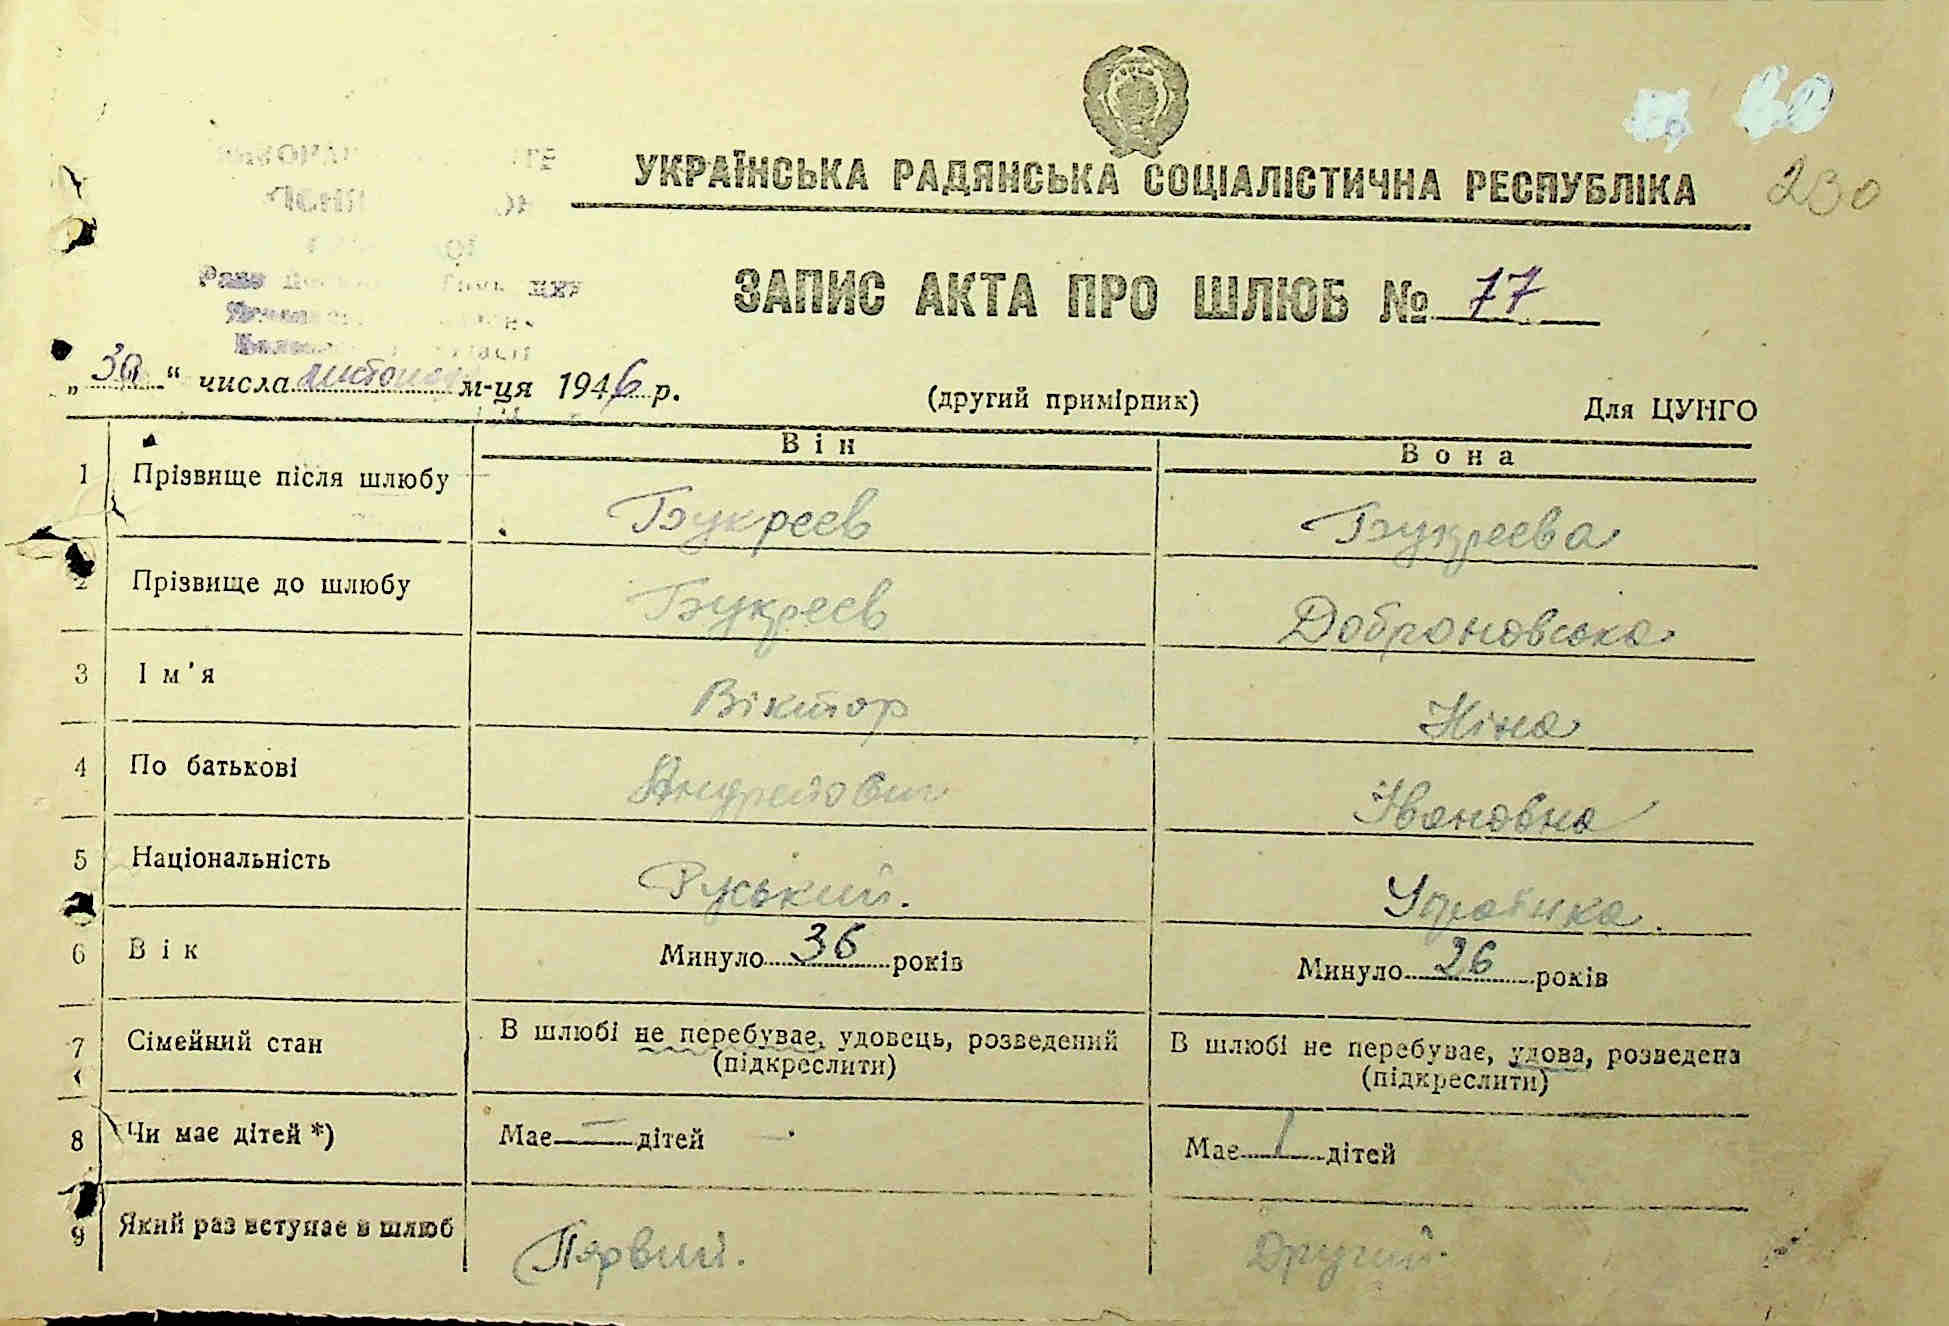 230
УКРАЇНСЬКА РАДЯНСЬКА СОЦІАЛІСТИЧНА РЕСПУБЛІКА
ЗАПИС АКТА ПРО ШЛЮБ № 77
„30“ числа листопада м-ця 1946 р.
(другий примірник)
Для ЦУНГО
Він
Вона
1 Прізвище після шлюбу Букреев Букреева
2 Прізвище до шлюбу Букреев Доброновська
3 Ім'я Віктор Ніна
4 По батькові Андрейович Івановна
5 Національність Руський. Українка.
6 Вік Минуло 36 років Минуло 26 років
7 Сімейний стан В шлюбі не перебуває, удовець, розведений В шлюбі не перебуває, удова, розведена
(підкреслити) (підкреслити)
8 Чи має дітей *) Має — дітей Має 1 дітей
9 Який раз вступає в шлюб Пярвий. Другий.